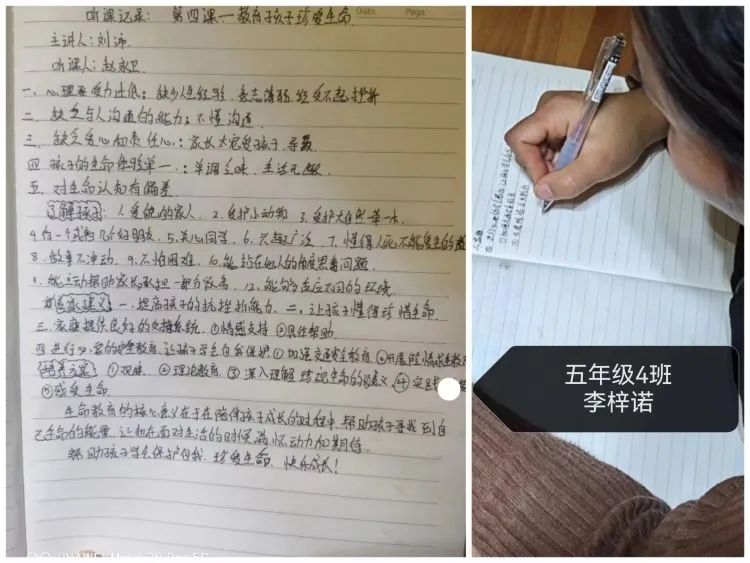 听课记录: 第四课一教育孩子珍爱生命.
Date. Page.
主讲人: 刘沛
听课人: 赵永卫.
一、心理承受力过低: 缺少人生经验, 意志薄弱, 经受不起挫折
二、缺乏与人沟通的能力: 不懂沟通
三、缺乏爱心和责任心: 家长太宠爱孩子, 导致
四 孩子的生命体验单一: 单调乏味, 生活无趣
五. 对生命认知有偏差
了解孩子: 1.爱他的家人 2.爱护小动物 3.爱护大自然一草一木
4.有一个或者几个好朋友, 5.关心同学, 6.兴趣广泛, 7.懂得人死不能复生的
8.做事不冲动, 9.不怕困难, 10.能站在他人的角度思考问题.
11.能主动帮助家长承担一部分家务, 12.能够适应不同的环境.
建议 一.提高孩子的抗挫折能力, 二.让孩子懂得珍惜生命.
三.家庭提供良好的支持系统. ①情感支持 ②具体帮助
四 进行必要的安全教育, 让孩子学会自我保护 ①加强交通安全教育.
培养方案: ①观察. ②理论教育. ③深入理解珍视生命的意义 ④
⑤感受生命.
生命教育的核心意义在于在陪伴孩子成长的过程中, 帮助孩子寻找到自
己生命的能量, 让他在面对生活的时候满怀动力和期待.
帮助孩子学会保护自我, 珍爱生命, 快乐成长!
五年级4班
李梓诺